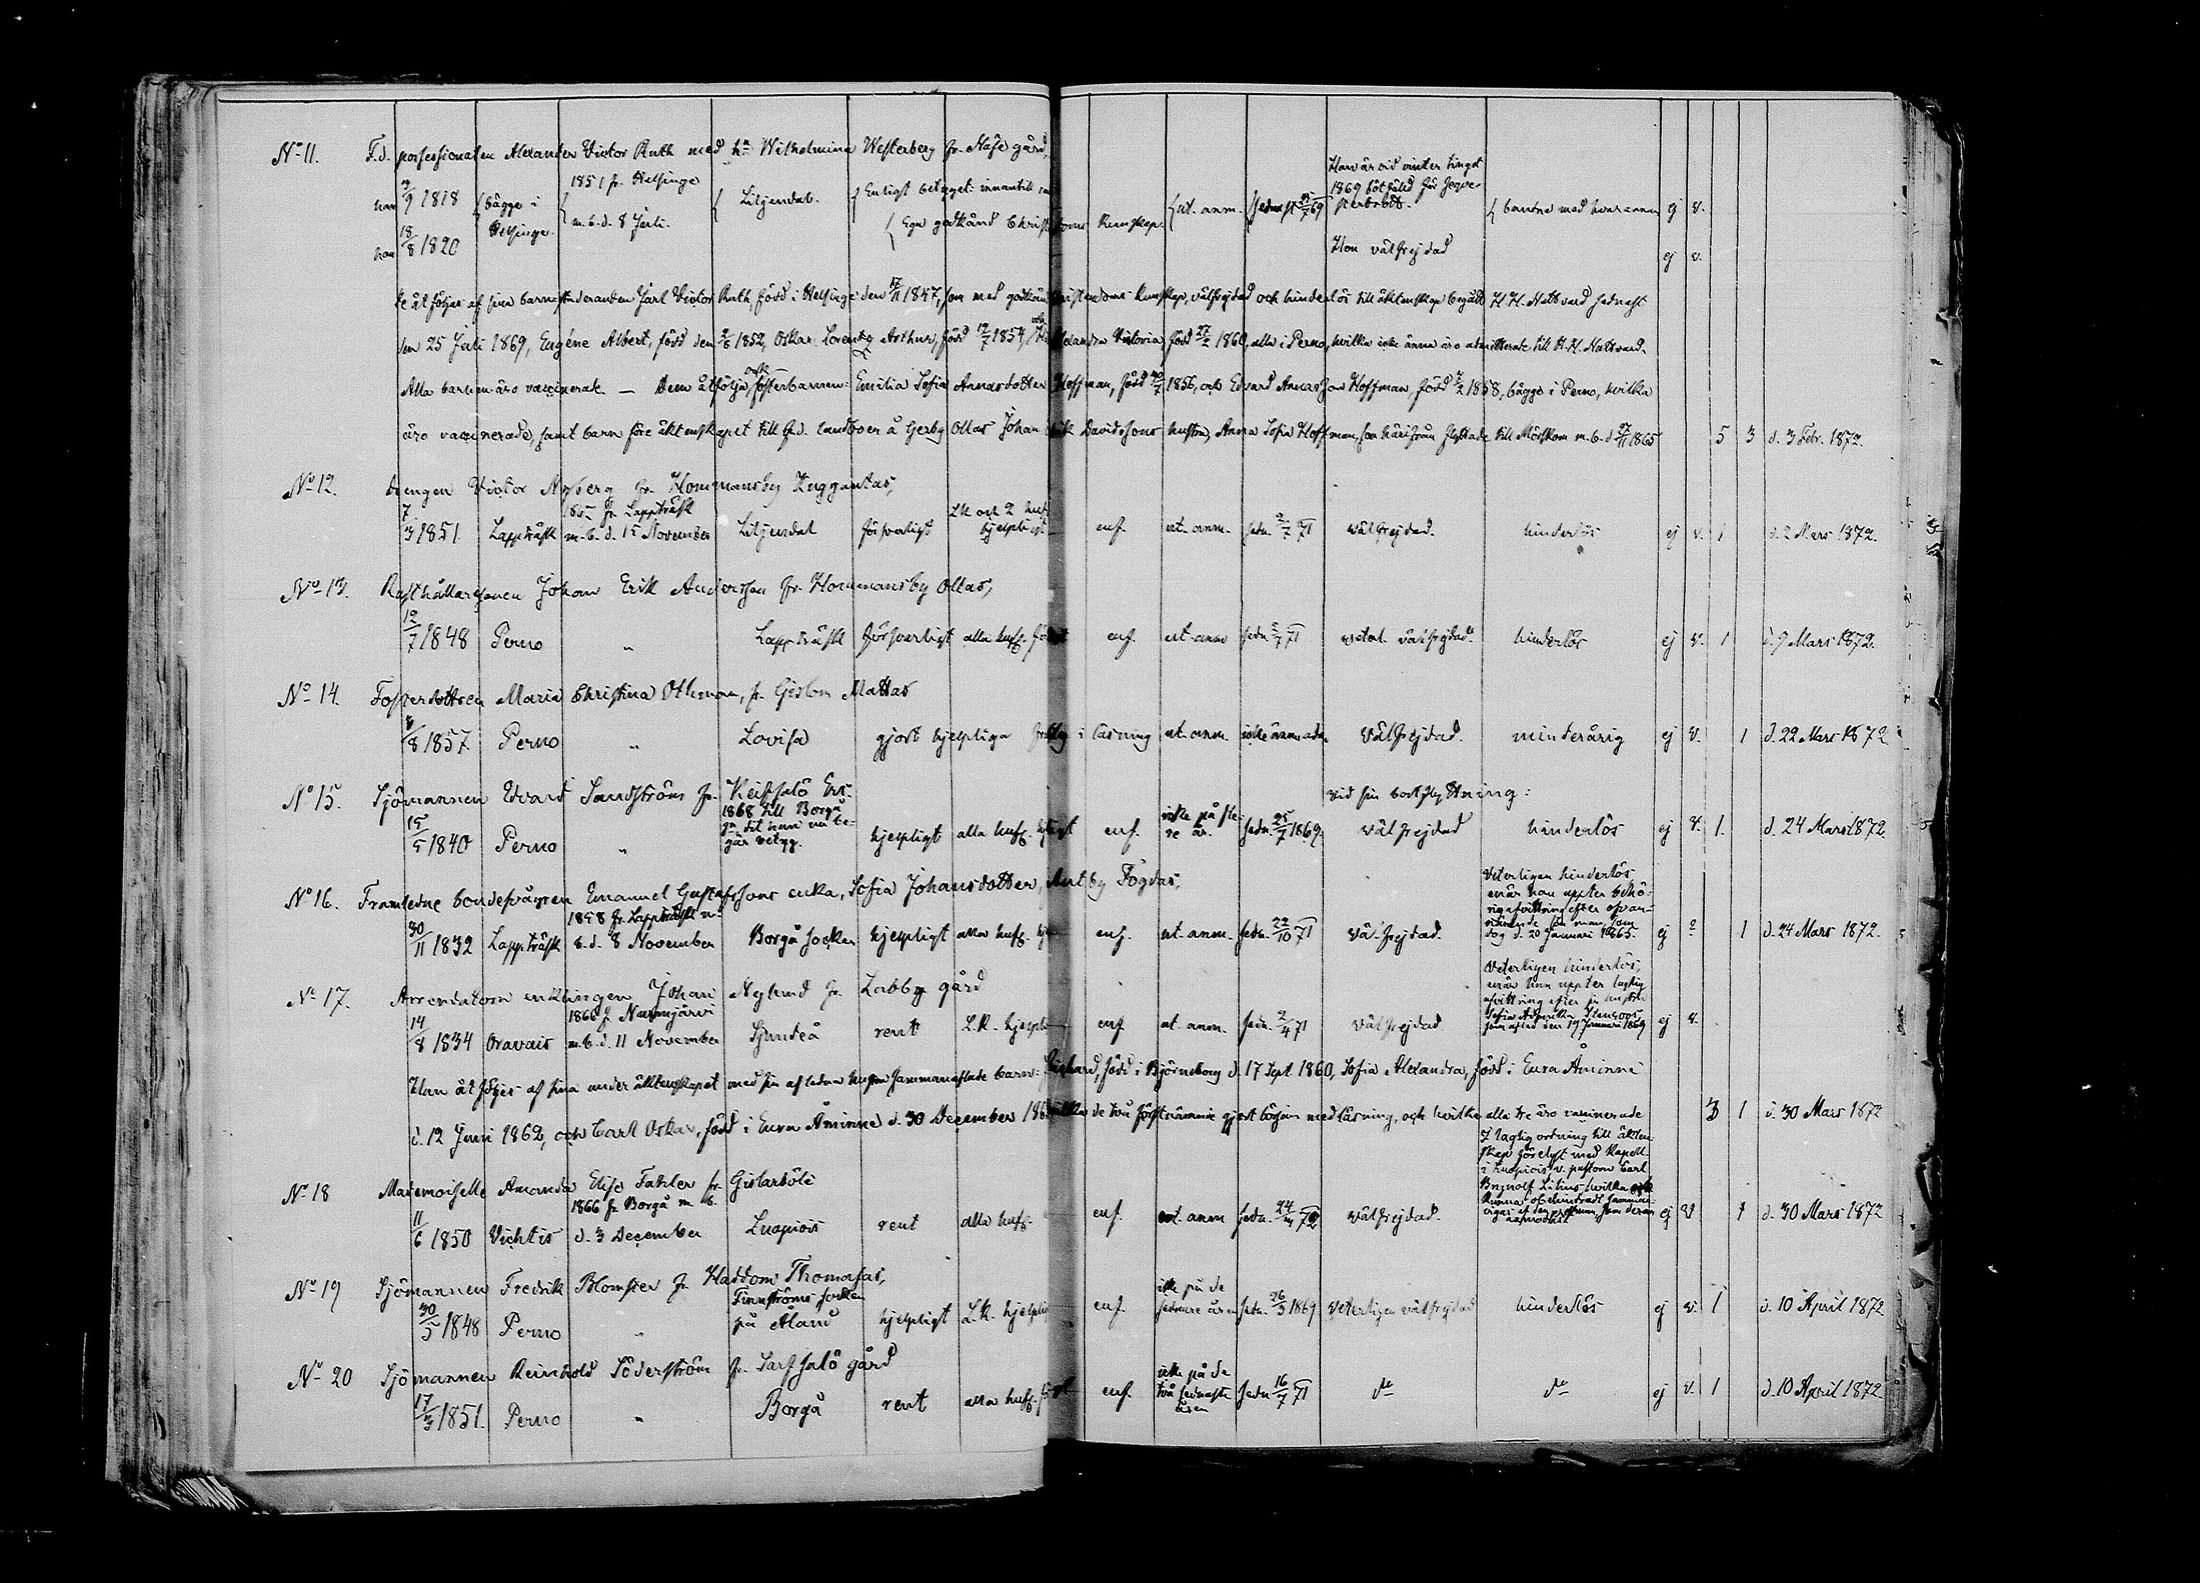 No 11. F.d. professionalen Alexander Victor Ruth med h:u Wilhelmina Westerberg fr. Näse gård,
1851 fr. Helsinge
Han är vid vinter tinget
1869 bötfälld för
han 1818 bägge i Liljendal. Enligt betyget: innantill ut. anm. sedn. 69
Helsinge. m.b.d. 8 Juli. Egn godkänd Christendoms kunskap. bundne med hvarannan ej v.
hon 18/8 1820 Hon välfrejdad ej v.
åtföljas af sina barn Karl Victor Ruth, född i Helsinge den 1847, som med godkänd Christendoms kunskap, välfrejdad och hinderlös till äktenskap begått H.H. Nattvard sednast
den 25 Juli 1869, Eugéne Albert, född den 1852, Oskar Lorentz Arthur, född 1854, Alexandra Victoria, född 27/2 1860, alla i Perno, hvilka icke ännu äro admitterade till H.H. Nattvard.
Alla barnen äro vaccinerade. — Dem åtfölja ock fosterbarnen: Emilia Sofia Annasdotter Hoffman, född 1856, och Edvard Annasson Hoffman, född 1858, bägge i Perno, hvilka
äro vaccinerade, samt barn före äktenskapet till f.d. landboen å Gerby Ollas Johan Erik Davidssons hustru, Anna Sofia Hoffman, som härifrån flyttade till Mörskom m.b.d. 27/11 1865 5 3 d. 3 Febr. 1872.
No 12. Drengen Victor Nyberg fr. Hommansby Kuggantas,
fr. Lappträsk L.K. och 2 huf:
7/3 1851 Lappträsk m.b.d. 15 November Liljendal försvarligt hjelpligt enf. ut. anm. sedn. 71 välfrejdad. hinderlös ej v. 1 d. 2 Mars 1872.
No 13. Rusthållaresonen Johan Erik Andersson fr. Hommansby Ollas,
12/7 1848 Perno " Lappträsk försvarligt alla huf. enf. ut. anm sedn. 71 vetul. välfrejdad. hinderlös ej v. 1 d. 9 Mars 1872.
No 14. Fosterdottren Maria Christina Othman, fr. Gislom Mattas
/8 1857 Perno " Lovisa gjort hjelpliga framsteg i läsning ut. anm. icke ännu adm. välfrejdad. minderårig ej v. 1 d. 22 Mars 1872
No 15. Sjömannen Edvard Sandström fr. Keitsalö Ers. vid sin bortflyttning:
1868 till Borgå
gn dit han nu be-
gär betyg. icke på fle-
re år.
15/5 1840 Perno " hjelpligt alla huf. hjelpligt enf. sedn. 25/7 1869. välfrejdad hinderlös ej v. 1. d. 24 Mars 1872.
No 16. Framledne bondesvågren Emanuel Gustafssons enka, Sofia Johansdotter, Antby Fogdas,
Veterligen hinderlös,
när hon uppter behö-
rig afvittring efter ofvan-
nämnde sin man, som
dog d. 20 Januari 1865.
1858 fr. Lappträsk m.
30/11 1832 Lappträsk b.d. 8 November Borgå socken hjelpligt alla huf. enf. ut. anm. sedn. 22/10 71 välfrejdad. ej 1 d. 24 Mars 1872.
No 17. Arrendatorn enklingen Johan Nylund fr. Labby gård
Veterligen hinderlös,
när han uppter laglig
afvittring efter sin hustru
Sofia
som afled den 19 Januari 1869
1866 fr. Nurmijärvi
14/8 1834 Oravais m.b.d. 11 November Sjundeå rent L.K. hjelpl. enf. ut. anm. sedn. 2/4 71 välfrejdad ej v.
Han åtföljes af sina under äktenskapet med sin aflidna hustru sammanaflade barn: Richard, född i Björneborg d. 17 Sept. 1860, Sofia Alexandra, född i Eura Åminne
d. 12 Juni 1862, och Carl Oskar, född i Eura Åminne d. 30 December hvilka de två förstnämnde gjort början med läsning, och hvilka alla tre äro vaccinerade 3 1 d. 30 Mars 1872
No 18 Mademoiselle Amanda Elise Fahler fr. Gislarböle
I laglig ordning till äkten-
skap förelyst med Kapell-
i Kuopio v. pastorn Carl
Brynolf Litius, hvilka ock
kunna obehindradt samman-
vigas af den prestman, som derom
1866 fr. Borgå m.b.
11/6 1850 Vichtis d. 3 December Kuopio rent alla huf. enf. ut. anm sedn. 24/3 72 välfrejdad. ej v 1 d. 30 Mars 1872
No 19 Sjömannen Fredrik Blomster fr. Haddom Thomasas,
Finnströms socken icke på de
30/5 1848 Perno " på Åland hjelpligt L.K. hjelpligt enf. sednare åren sedn. 26/3 1869 veterligen välfrejdad hinderlös ej v. 1 d. 10 April 1872
No 20 Sjömannen Reinhold Söderström fr. Sarfsalö gård
icke på de
två sednaste
åren
17/3 1851. Perno " Borgå rent alla huf. enf. sedn. 16/7 71 do do ej v. 1 d. 10 April 1872.